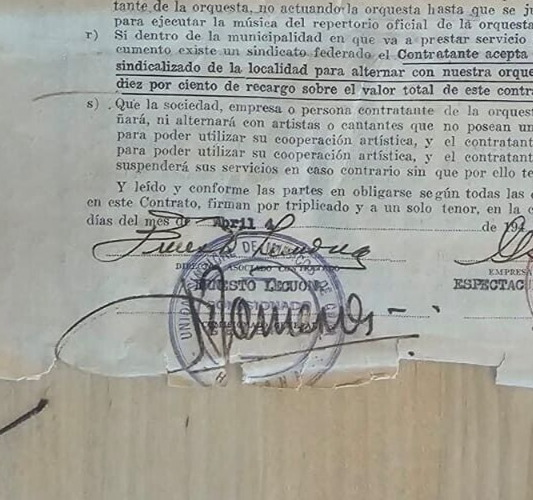 tante de la orquesta, no actuando la orquesta hasta que se ju
para ejecutar la música del repertorio oficial de la orquesta
r) Si dentro de la municipalidad en que va a prestar servicio
cumento existe un sindicato federado el Contratante acepta
sindicalizado de la localidad para alternar con nuestra orque
diez por ciento de recargo sobre el valor total de este contra
s) Que la sociedad, empresa o persona contratante de la orquest
ñará, ni alternará con artistas o cantantes que no posean un
para poder utilizar su cooperación artística, y el contratant
para poder utilizar su cooperación artística, y el contratant
suspenderá sus servicios en caso contrario sin que por ello te
Y leído y conforme las partes en obligarse según todas las
en este Contrato, firman por triplicado y a un solo tenor, en la c
días del mes de Abril 4 de 194
Ernesto Lecuona
DIRECTOR ASOCIADO CONTRATADO
EMPRESA
ERNESTO LECUONA
ESPECTAC
UNION
MUSICAL DE